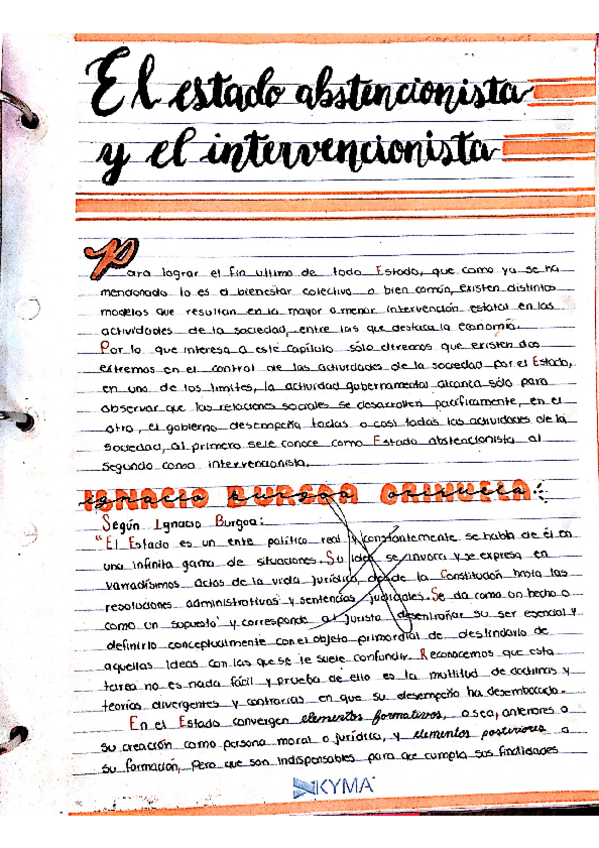 El estado abstencionista
y el intervencionista
Para lograr el fin ultimo de todo Estado, que como ya se ha
mencionado lo es el bienestar colectivo o bien común, existen distintos
modelos que resultan en la mayor o menor intervención estatal en las
actividades de la sociedad, entre las que destaca la economía.
Por lo que interesa a este capítulo sólo diremos que existen dos
extremos en el control de las actividades de la sociedad por el Estado,
en uno de los limites, la actividad gubernamental alcanza sólo para
observar que las relaciones sociales se desarrollen pacíficamente, en el
otro, el gobierno desempeña todas o casi todas las actividades de la
sociedad, al primero se le conoce como Estado abstencionista al
segundo como intervencionista.
IGNACIO BURGOA ORIHUELA
Según Ignacio Burgoa:
"El Estado es un ente político real y constantemente se habla de él en
una infinita gama de situaciones. Su idea se invoca y se expresa en
varradísimos actos de la vida jurídica, desde la Constitución hasta las
resoluciones administrativas y sentencias judiciales. Se da como un hecho o
como un supuesto y corresponde al jurista desentrañar su ser esencial y
definirlo conceptualmente con el objeto primordial de deslindarlo de
aquellas ideas con las que se le suele confundir. Reconocemos que esta
tarea no es nada fácil y prueba de ello es la multitud de doctrinas y
teorías divergentes y contrarias en que su desempeño ha desembocado.
En el Estado convergen elementos formativos, o sea, anteriores a
su creación como persona moral o jurídica, y elementos posteriores a
su formación, pero que son indispensables para que cumpla sus finalidades
KYMA